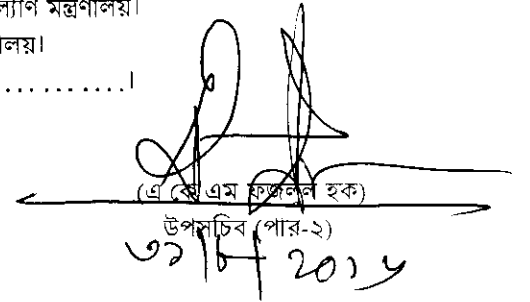 ল্যাণ মন্ত্রণালয়।
ালয়।
...........।
(এ কে এম ফজলুল হক)
উপসচিব (পার-২)